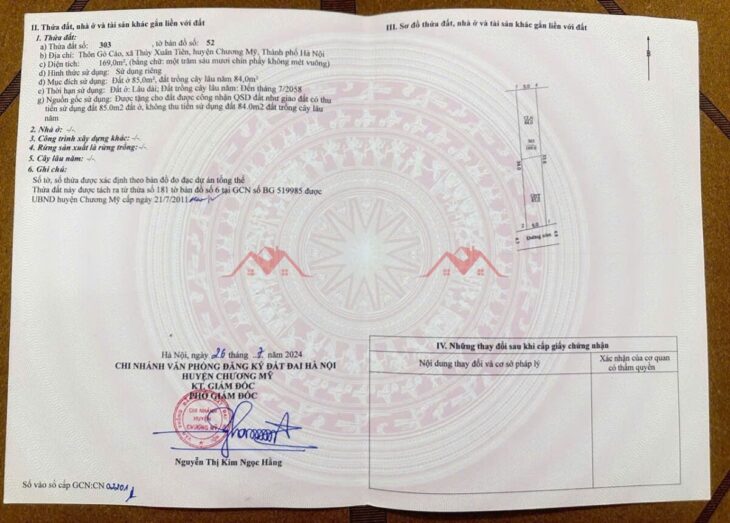 II. Thửa đất, nhà ở và tài sản khác gắn liền với đất
1. Thửa đất:
a) Thửa đất số: 303 , tờ bản đồ số: 52
b) Địa chỉ: Thôn Gò Cáo, xã Thủy Xuân Tiên, huyện Chương Mỹ, Thành phố Hà Nội
c) Diện tích: 169,0m², (bằng chữ: một trăm sáu mươi chín phẩy không mét vuông)
d) Hình thức sử dụng: Sử dụng riêng
đ) Mục đích sử dụng: Đất ở 85,0m², đất trồng cây lâu năm 84,0m²
e) Thời hạn sử dụng: Đất ở: Lâu dài; Đất trồng cây lâu năm: Đến tháng 7/2058
g) Nguồn gốc sử dụng: Được tặng cho đất được công nhận QSD đất như giao đất có thu
tiền sử dụng đất 85.0m2 đất ở, không thu tiền sử dụng đất 84.0m2 đất trồng cây lâu
năm
2. Nhà ở: -/-
3. Công trình xây dựng khác: -/-
4. Rừng sản xuất là rừng trồng: -/-
5. Cây lâu năm: -/-
6. Ghi chú:
Số tờ, số thửa được xác định theo bản đồ đo đạc dự án tổng thể
Thửa đất này được tách ra từ thửa số 181 tờ bản đồ số 6 tại GCN số BG 519985 được
UBND huyện Chương Mỹ cấp ngày 21/7/2011
Hà Nội, ngày 26 tháng 7 năm 2024
CHI NHÁNH VĂN PHÒNG ĐĂNG KÝ ĐẤT ĐAI HÀ NỘI
HUYỆN CHƯƠNG MỸ
KT. GIÁM ĐỐC
PHÓ GIÁM ĐỐC
CHI NHÁNH
HUYỆN
CHƯƠNG MỸ
Nguyễn Thị Kim Ngọc Hằng
Số vào sổ cấp GCN:CN
III. Sơ đồ thửa đất, nhà ở và tài sản khác gắn liền với đất
B
5.0
303
169.0
2 6,0 1
Đường xóm
IV. Những thay đổi sau khi cấp giấy chứng nhận
Nội dung thay đổi và cơ sở pháp lý
Xác nhận của cơ quan
có thẩm quyền